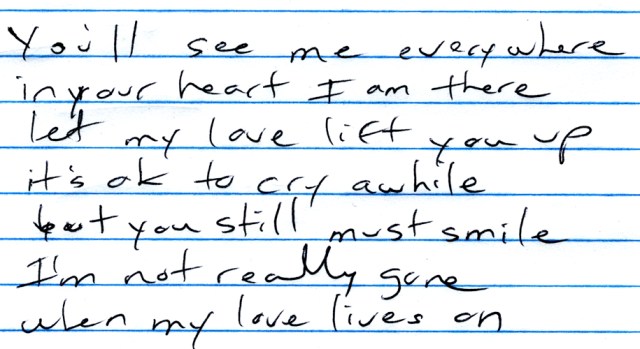 You'll see me everywhere
in your heart I am there
let my love lift you up
it's ok to cry awhile
but you still must smile
I'm not really gone
when my love lives on